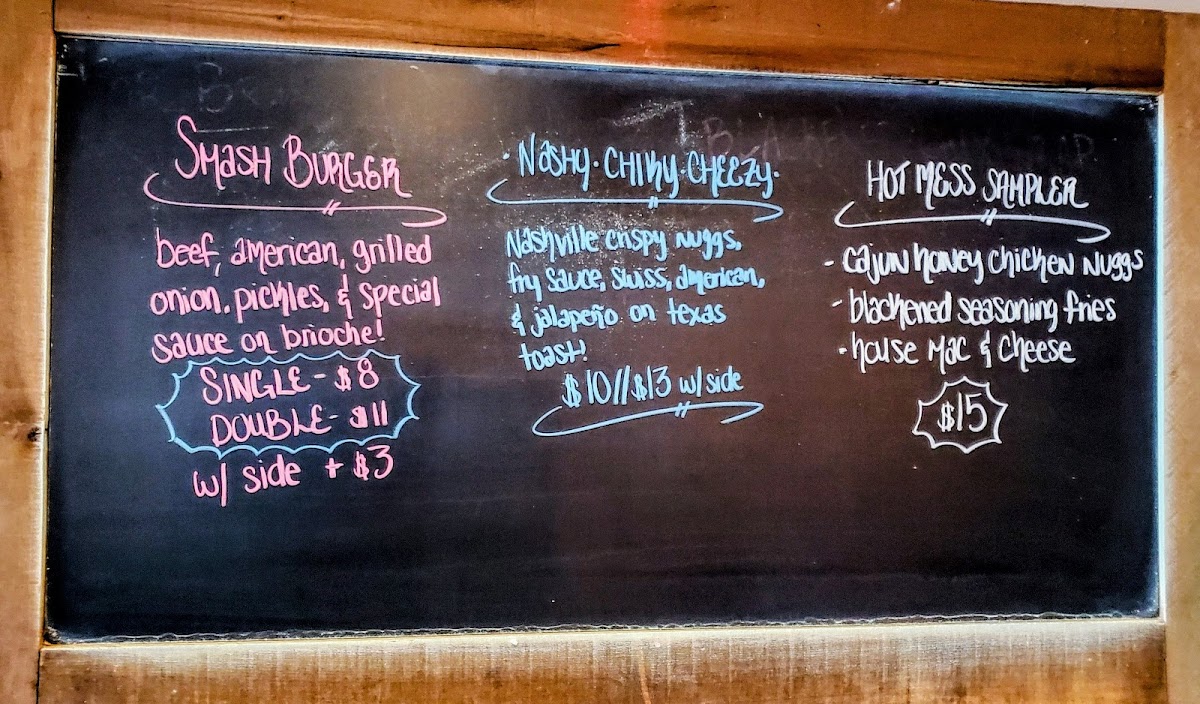 SMASH BURGER
beef, american, grilled
onion, pickles, & special
sauce on brioche!
SINGLE - $8
DOUBLE - $11
w/ side + $3
· NASHY · CHIKY · CHEEZY ·
Nashville crispy nuggs,
fry sauce, swiss, american,
& jalapeño on texas
toast!
$10//$13 w/ side
HOT MESS SAMPLER
- cajun honey chicken nuggs
- blackened seasoning fries
- house mac & cheese
$15